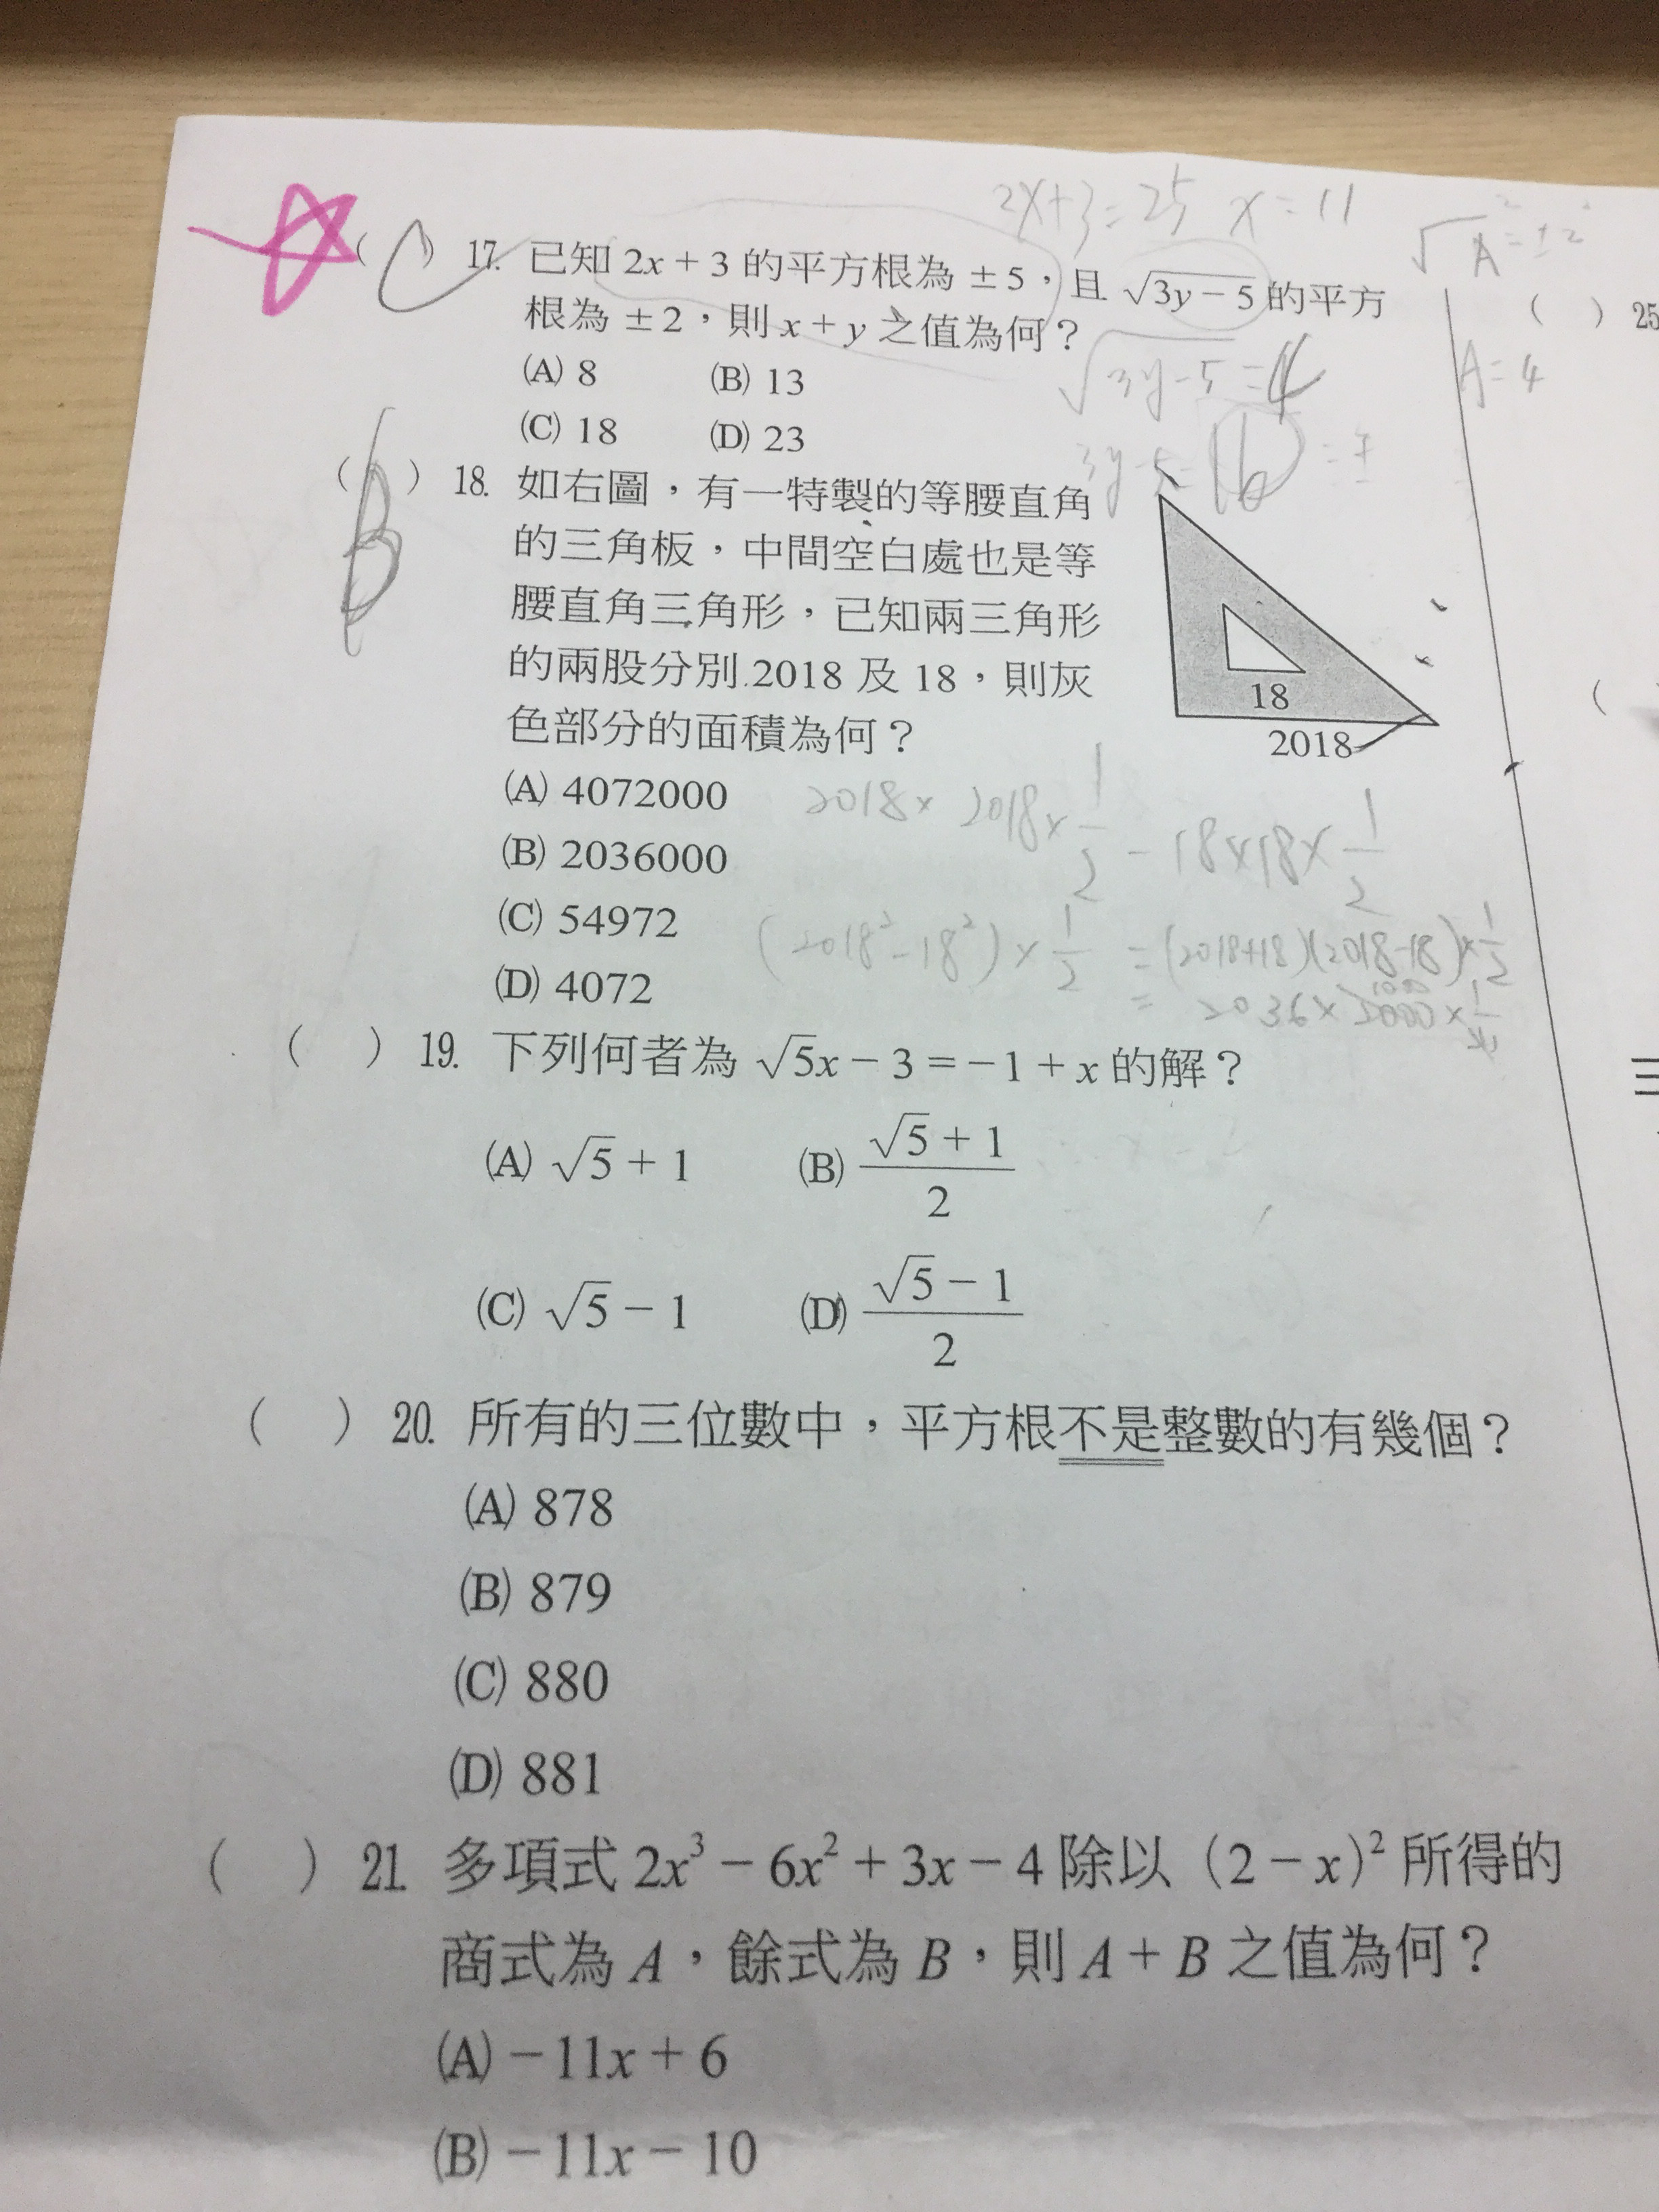 2x+3=25 x=11
( C ) 17. 已知 2x + 3 的平方根為 ± 5，且 √3y − 5 的平方
根為 ± 2，則 x + y 之值為何？
(A) 8 (B) 13
(C) 18 (D) 23
√3y-5=4
A=4
( B ) 18. 如右圖，有一特製的等腰直角
的三角板，中間空白處也是等
腰直角三角形，已知兩三角形
的兩股分別 2018 及 18，則灰
色部分的面積為何？
18
2018
(A) 4072000
(B) 2036000
(C) 54972
(D) 4072
2018× 2018×1/2 - 18×18×1/2
(2018²-18²)×1/2 = (2018+18)(2018-18)×1/2
= 2036×2000×1/2
( ) 19. 下列何者為 √5x − 3 = − 1 + x 的解？
(A) √5 + 1 (B) (√5 + 1)/2
(C) √5 − 1 (D) (√5 − 1)/2
( ) 20. 所有的三位數中，平方根不是整數的有幾個？
(A) 878
(B) 879
(C) 880
(D) 881
( ) 21. 多項式 2x³ − 6x² + 3x − 4 除以 ( 2 − x )² 所得的
商式為 A，餘式為 B，則 A + B 之值為何？
(A) − 11x + 6
(B) − 11x − 10
( ) 25
三